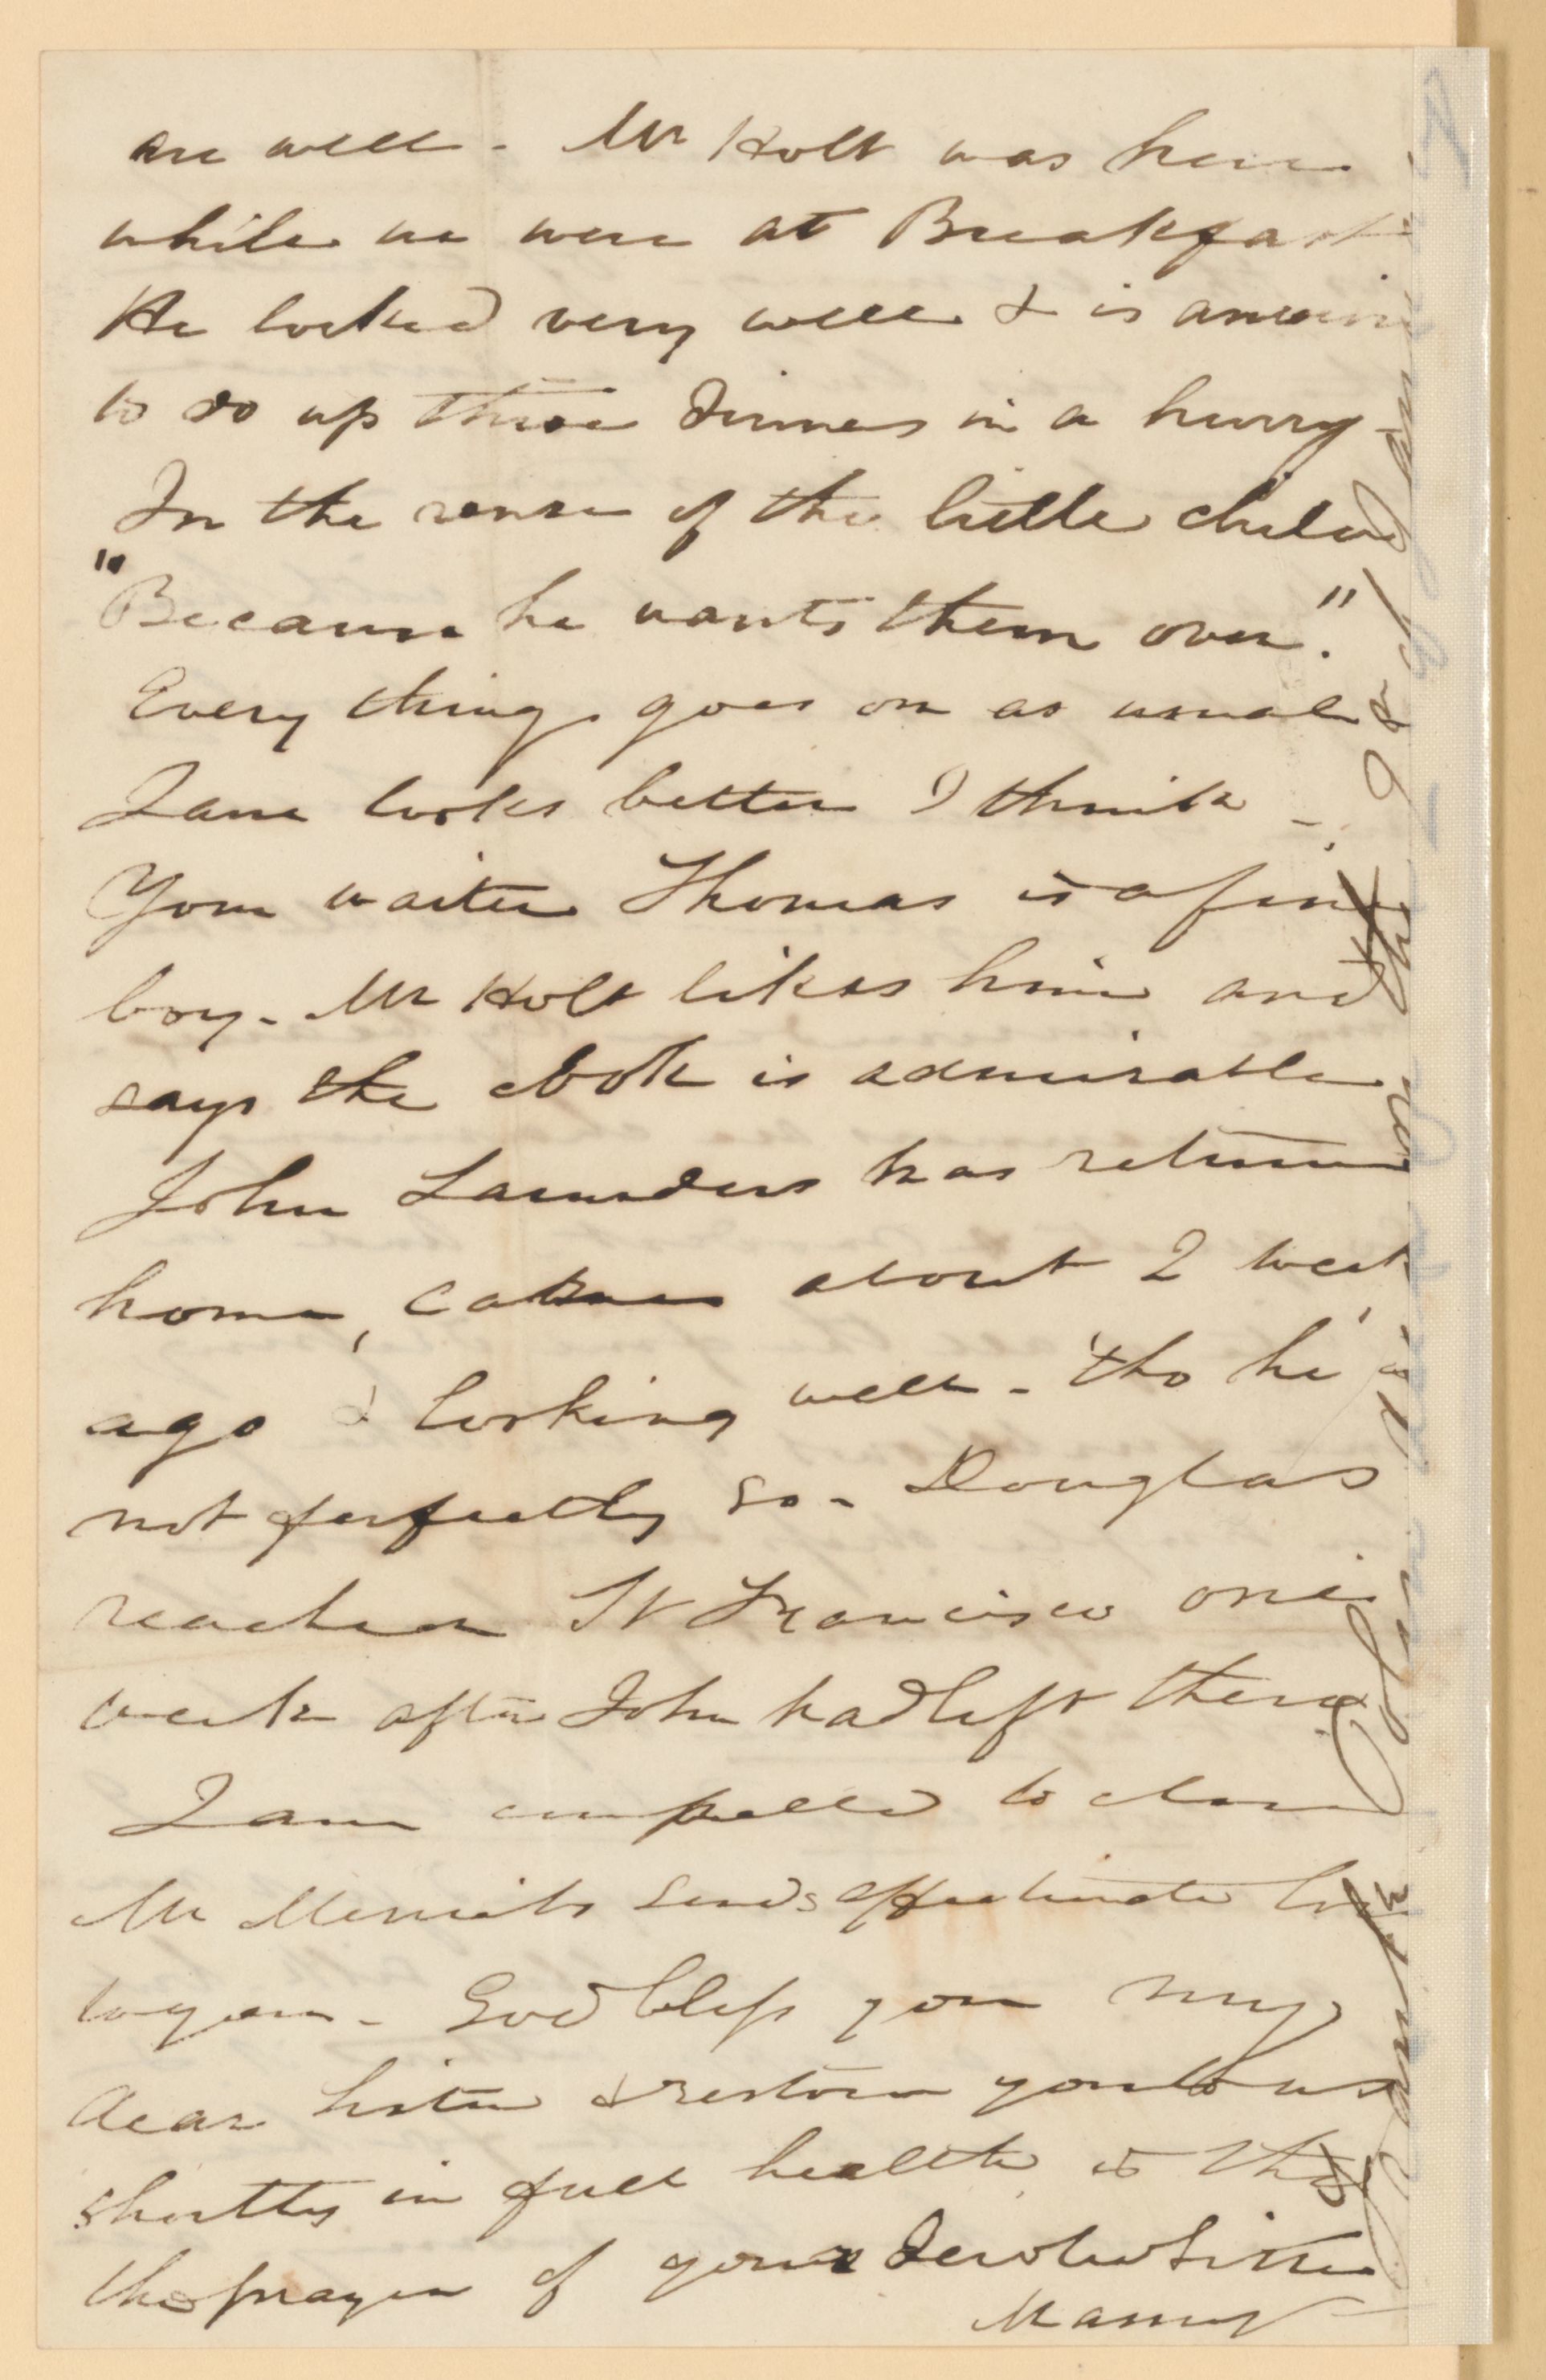 are well - Mr Holt was here
while we were at Breakfast
He looked very well & is
to do up those dinners in a hurry -
In the sense of the little child
"Because he wants them over."
Every thing goes on as usual
Jane looks better I think -
Your waiter Thomas is a fine
boy - Mr Holt likes him and
says the cook is admirable
John Saunders has returned
home, came about 2 weeks
ago & looking well - 'tho he is
not perfectly so - Douglas
reached St Francisco one
week after John had left there
I am compelled to close
Mr Merrick sends affectionate love
to you - God bless you my
dear Sister & restore you to us
shortly in full health is the
the prayer of your devoted Sister
Mary